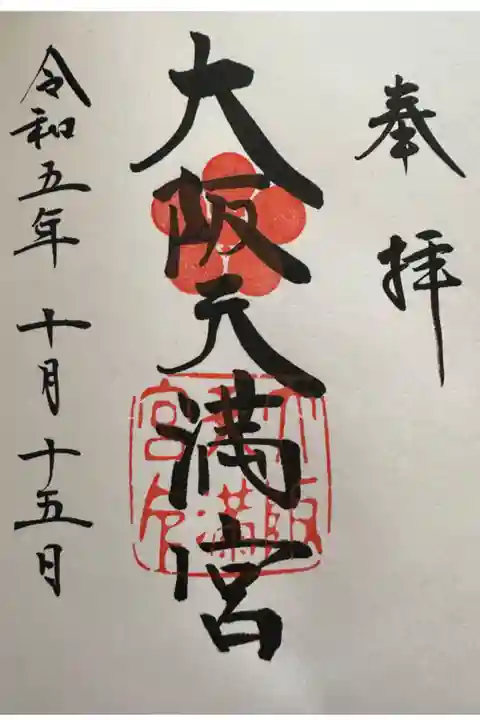 奉拝
大阪天満宮
大阪天満宮印
令和五年 十月 十五日